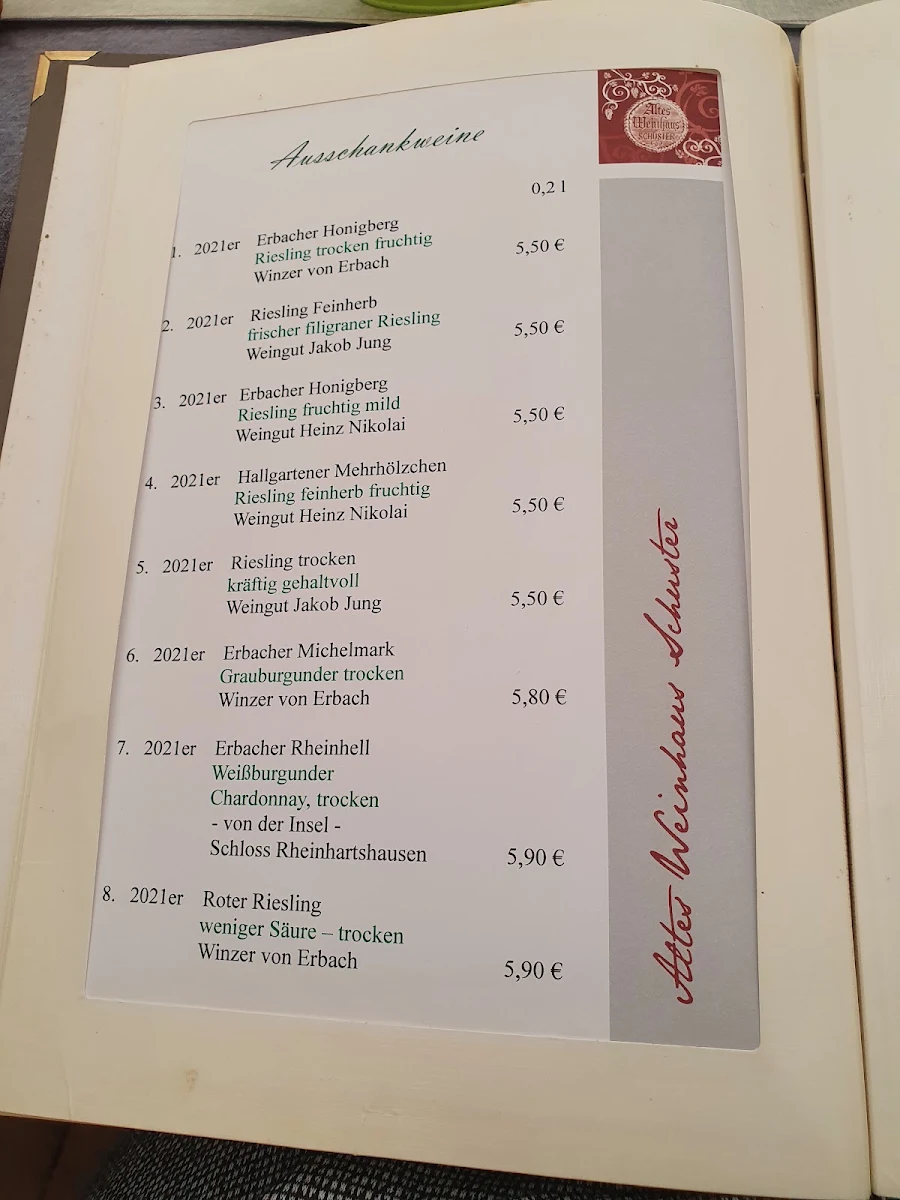 Altes
Weinhaus
SCHUSTER
Ausschankweine
0,2 l
1. 2021er Erbacher Honigberg
Riesling trocken fruchtig 5,50 €
Winzer von Erbach
2. 2021er Riesling Feinherb
frischer filigraner Riesling 5,50 €
Weingut Jakob Jung
3. 2021er Erbacher Honigberg
Riesling fruchtig mild 5,50 €
Weingut Heinz Nikolai
4. 2021er Hallgartener Mehrhölzchen
Riesling feinherb fruchtig 5,50 €
Weingut Heinz Nikolai
5. 2021er Riesling trocken
kräftig gehaltvoll
Weingut Jakob Jung 5,50 €
6. 2021er Erbacher Michelmark
Grauburgunder trocken
Winzer von Erbach 5,80 €
7. 2021er Erbacher Rheinhell
Weißburgunder
Chardonnay, trocken
- von der Insel -
Schloss Rheinhartshausen 5,90 €
8. 2021er Roter Riesling
weniger Säure – trocken
Winzer von Erbach 5,90 €
Altes Weinhaus Schuster